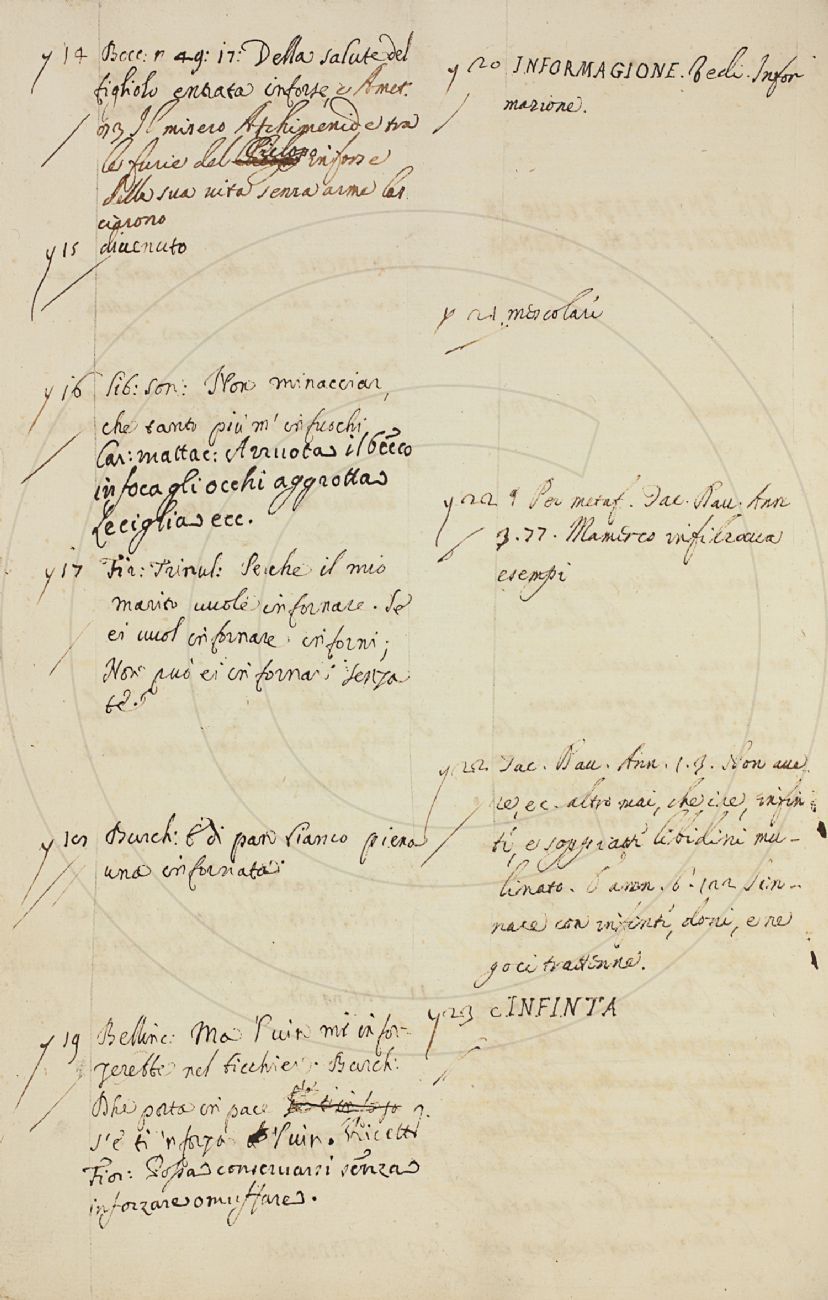 y 14 Bocc: n 49: 17: Della salute del
figliolo entrata inforse, e Amet.
93 Il misero Achimenide tra
le furie del Ciclopo inforse
della sua vita senza arme las
ciarono
y 15 divenuto
y 16 Lib: son: Non minacciar,
che tanto più m' infuochi
Car: mattac: Arruota il becco
infoca gli occhi aggrotta
Le ciglia ecc.
y 17 Fir: Trinul: Perche il mio
marito vuole infornare. Se
ei vuol infornare inforni;
Non può ei infornar senza
te?
y 18 Burch: E di pan bianco piena
una infornata
y 19 Bellinc: Ma 'l vin mi infor-
zerebbe nel bicchier. Burch:
Dhe porta in pace
s'e ti inforza 'l vin. Ricett
Fior: Possa conservarsi senza
inforzare o muffare.
y 20 INFORMAGIONE. Vedi. Infor
mazione.
y 21 mescolati
y 22 Per metaf. Dav. Ann
3. 77. Mamerco infilzava
esempi
y 22 Dav. Ann. 1. 3. Non ave
re, ec. altro mai, che ire, infin
ti, e soppiatti libidini mu-
linato. E ann. 6. 122
nace con infinti, doni, e ne
goci trattenne.
y 23 INFINTA